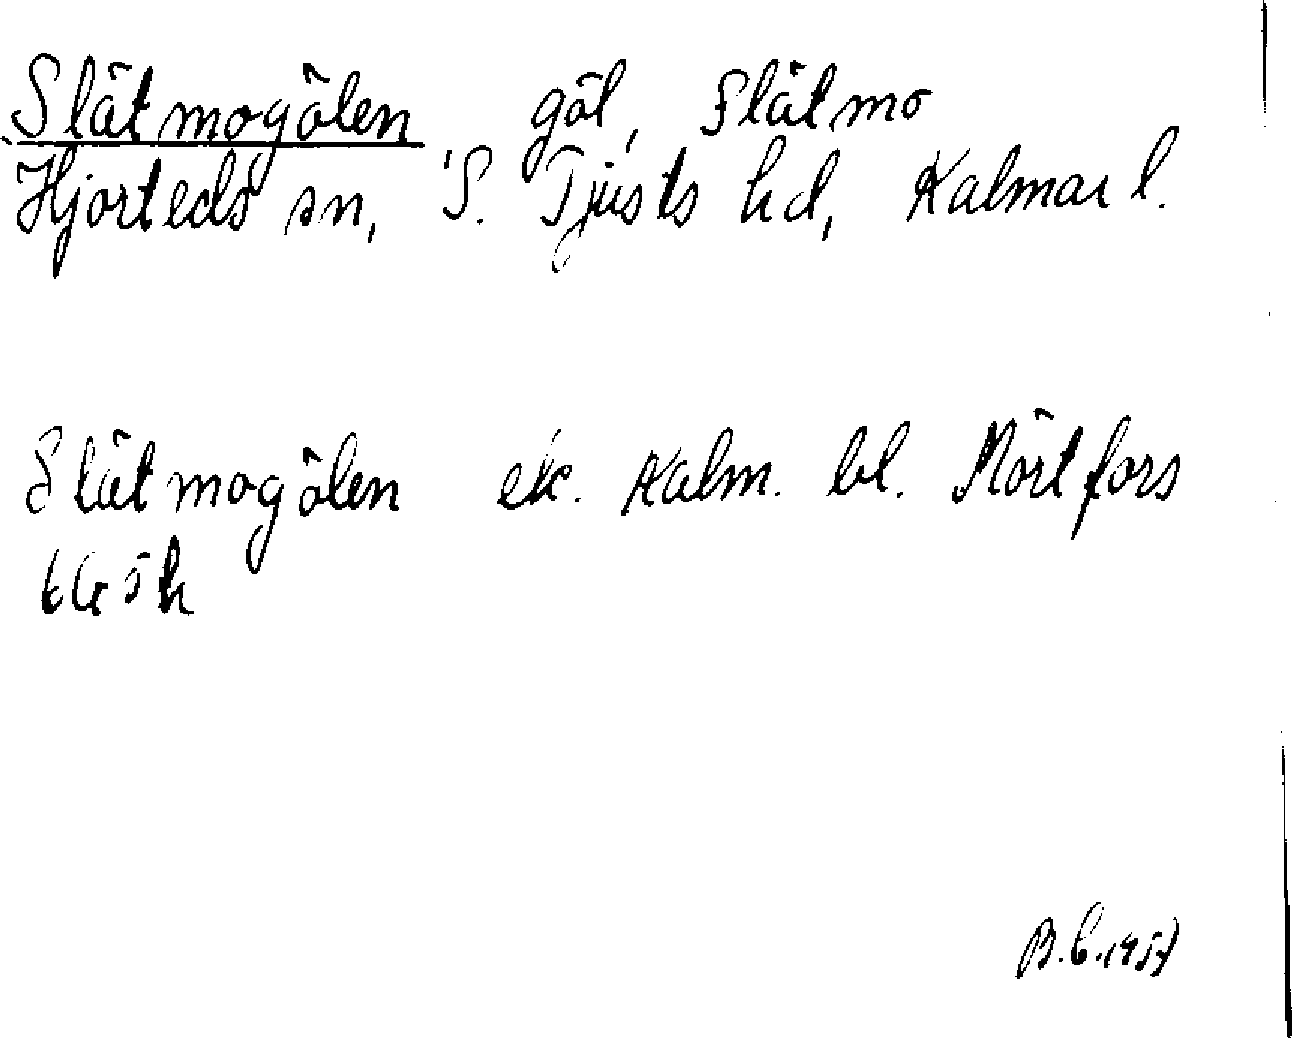 Slätmogölen göl, Slätmo
Hjorteds sn, S. Tjusts hd, Kalmar l.
Slätmogölen ek. Kalm. bl. Mörtfors
B.C. 1957